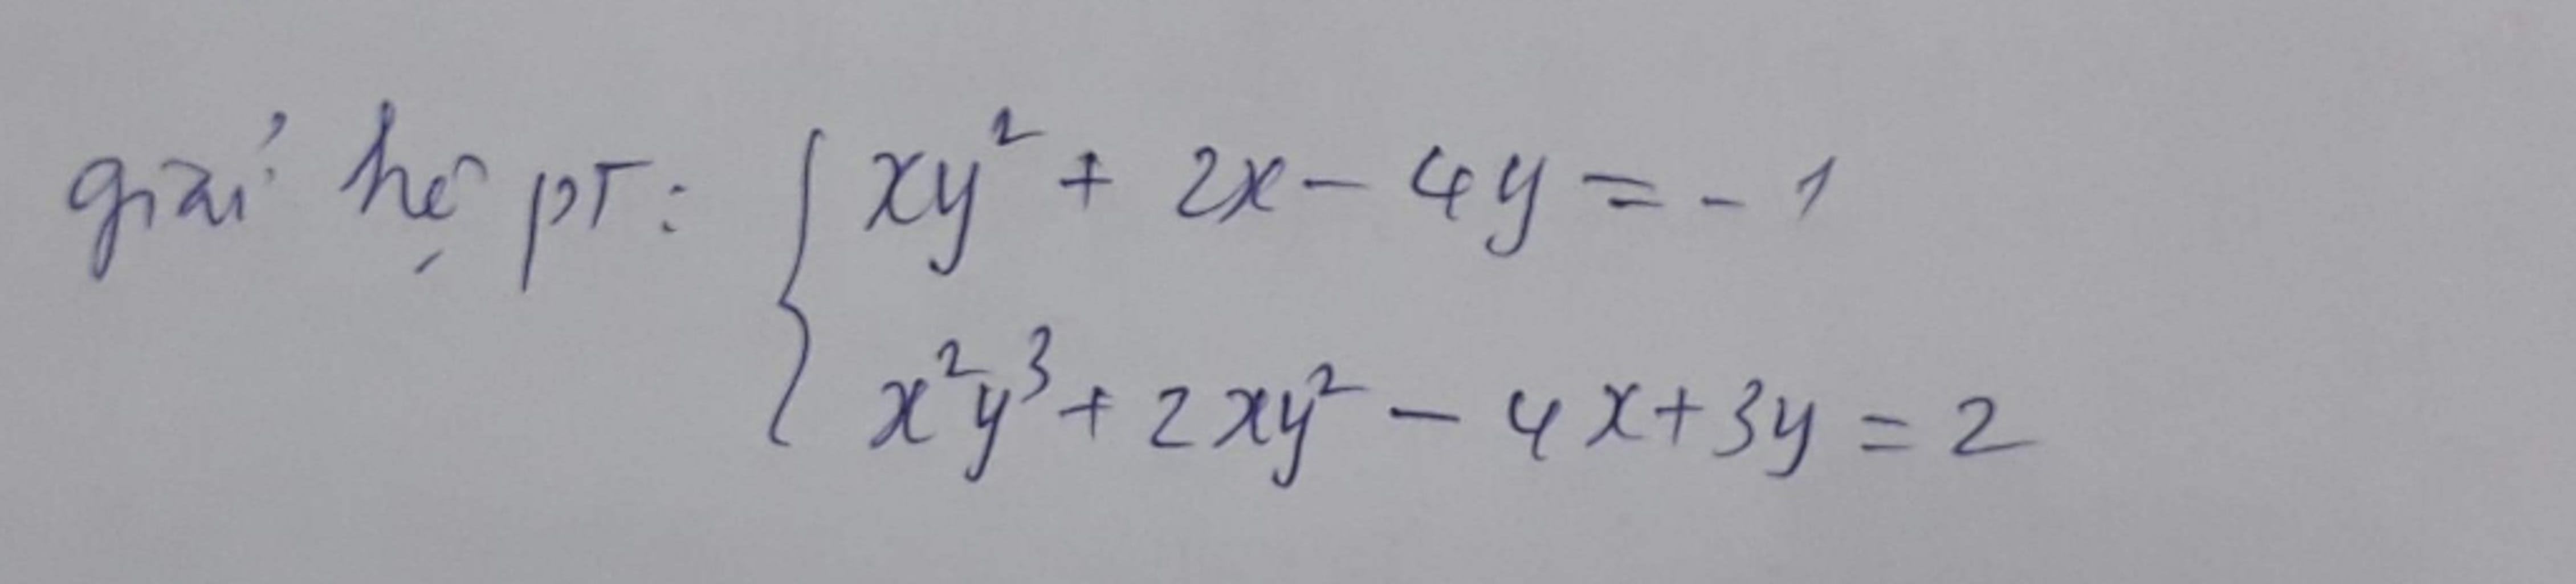 giải hệ pT: { xy² + 2x - 4y = - 1
x²y³ + 2xy² - 4x + 3y = 2